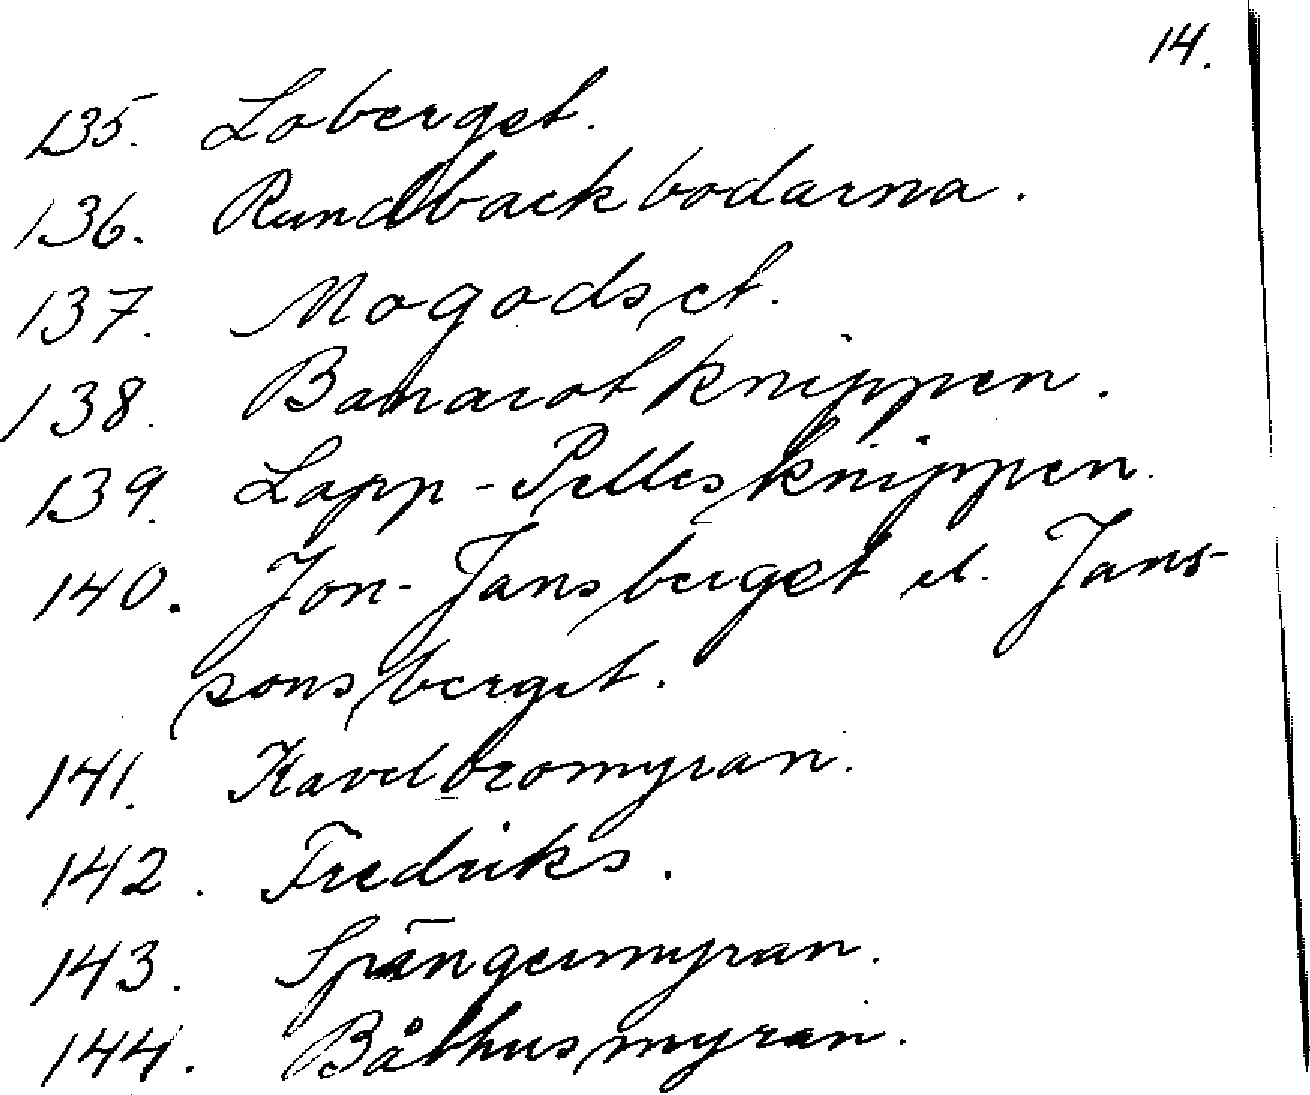 14.
135. Loberget.
136. Rundbackbodarna.
137. Mogodset.
138. Banarotknippen.
139. Lapp-Pellesknippen.
140. Jon-Jansberget el. Jans-
sonsberget.
141. Kavelbromyran.
142. Fredriks.
143. Spängermyran.
144. Båthusmyran.